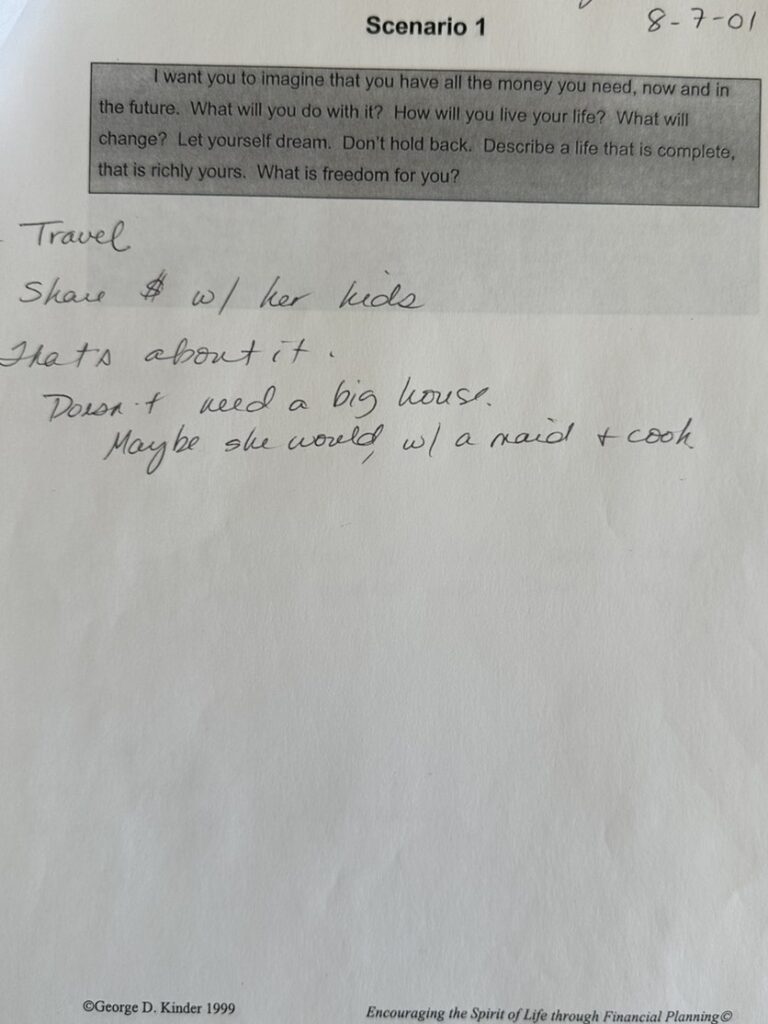 8-7-01
Scenario 1
I want you to imagine that you have all the money you need, now and in
the future. What will you do with it? How will you live your life? What will
change? Let yourself dream. Don't hold back. Describe a life that is complete,
that is richly yours. What is freedom for you?
Travel
Share $ w/ her kids
That's about it.
Doesn't need a big house.
Maybe she would, w/ a maid + cook
©George D. Kinder 1999
Encouraging the Spirit of Life through Financial Planning©